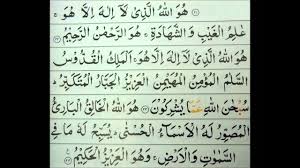 هُوَ اللّٰهُ الَّذِىْ لَآ اِلٰهَ اِلَّا هُوَ ۚ
عٰلِمُ الْغَيْبِ وَالشَّهَادَةِ ۚ هُوَ الرَّحْمٰنُ الرَّحِيْمُ
هُوَ اللّٰهُ الَّذِىْ لَآ اِلٰهَ اِلَّا هُوَ ۚ اَلْمَلِكُ الْقُدُّوْسُ
السَّلٰمُ الْمُؤْمِنُ الْمُهَيْمِنُ الْعَزِيْزُ الْجَبَّارُ الْمُتَكَبِّرُ ؕ
سُبْحٰنَ اللّٰهِ عَمَّا يُشْرِكُوْنَ ﴿۲۳﴾ هُوَ اللّٰهُ الْخَالِقُ الْبَارِئُ
الْمُصَوِّرُ لَهُ الْاَسْمَآءُ الْحُسْنٰى ؕ يُسَبِّحُ لَهٗ مَا فِى
السَّمٰوٰتِ وَالْاَرْضِ ۚ وَهُوَ الْعَزِيْزُ الْحَكِيْمُ